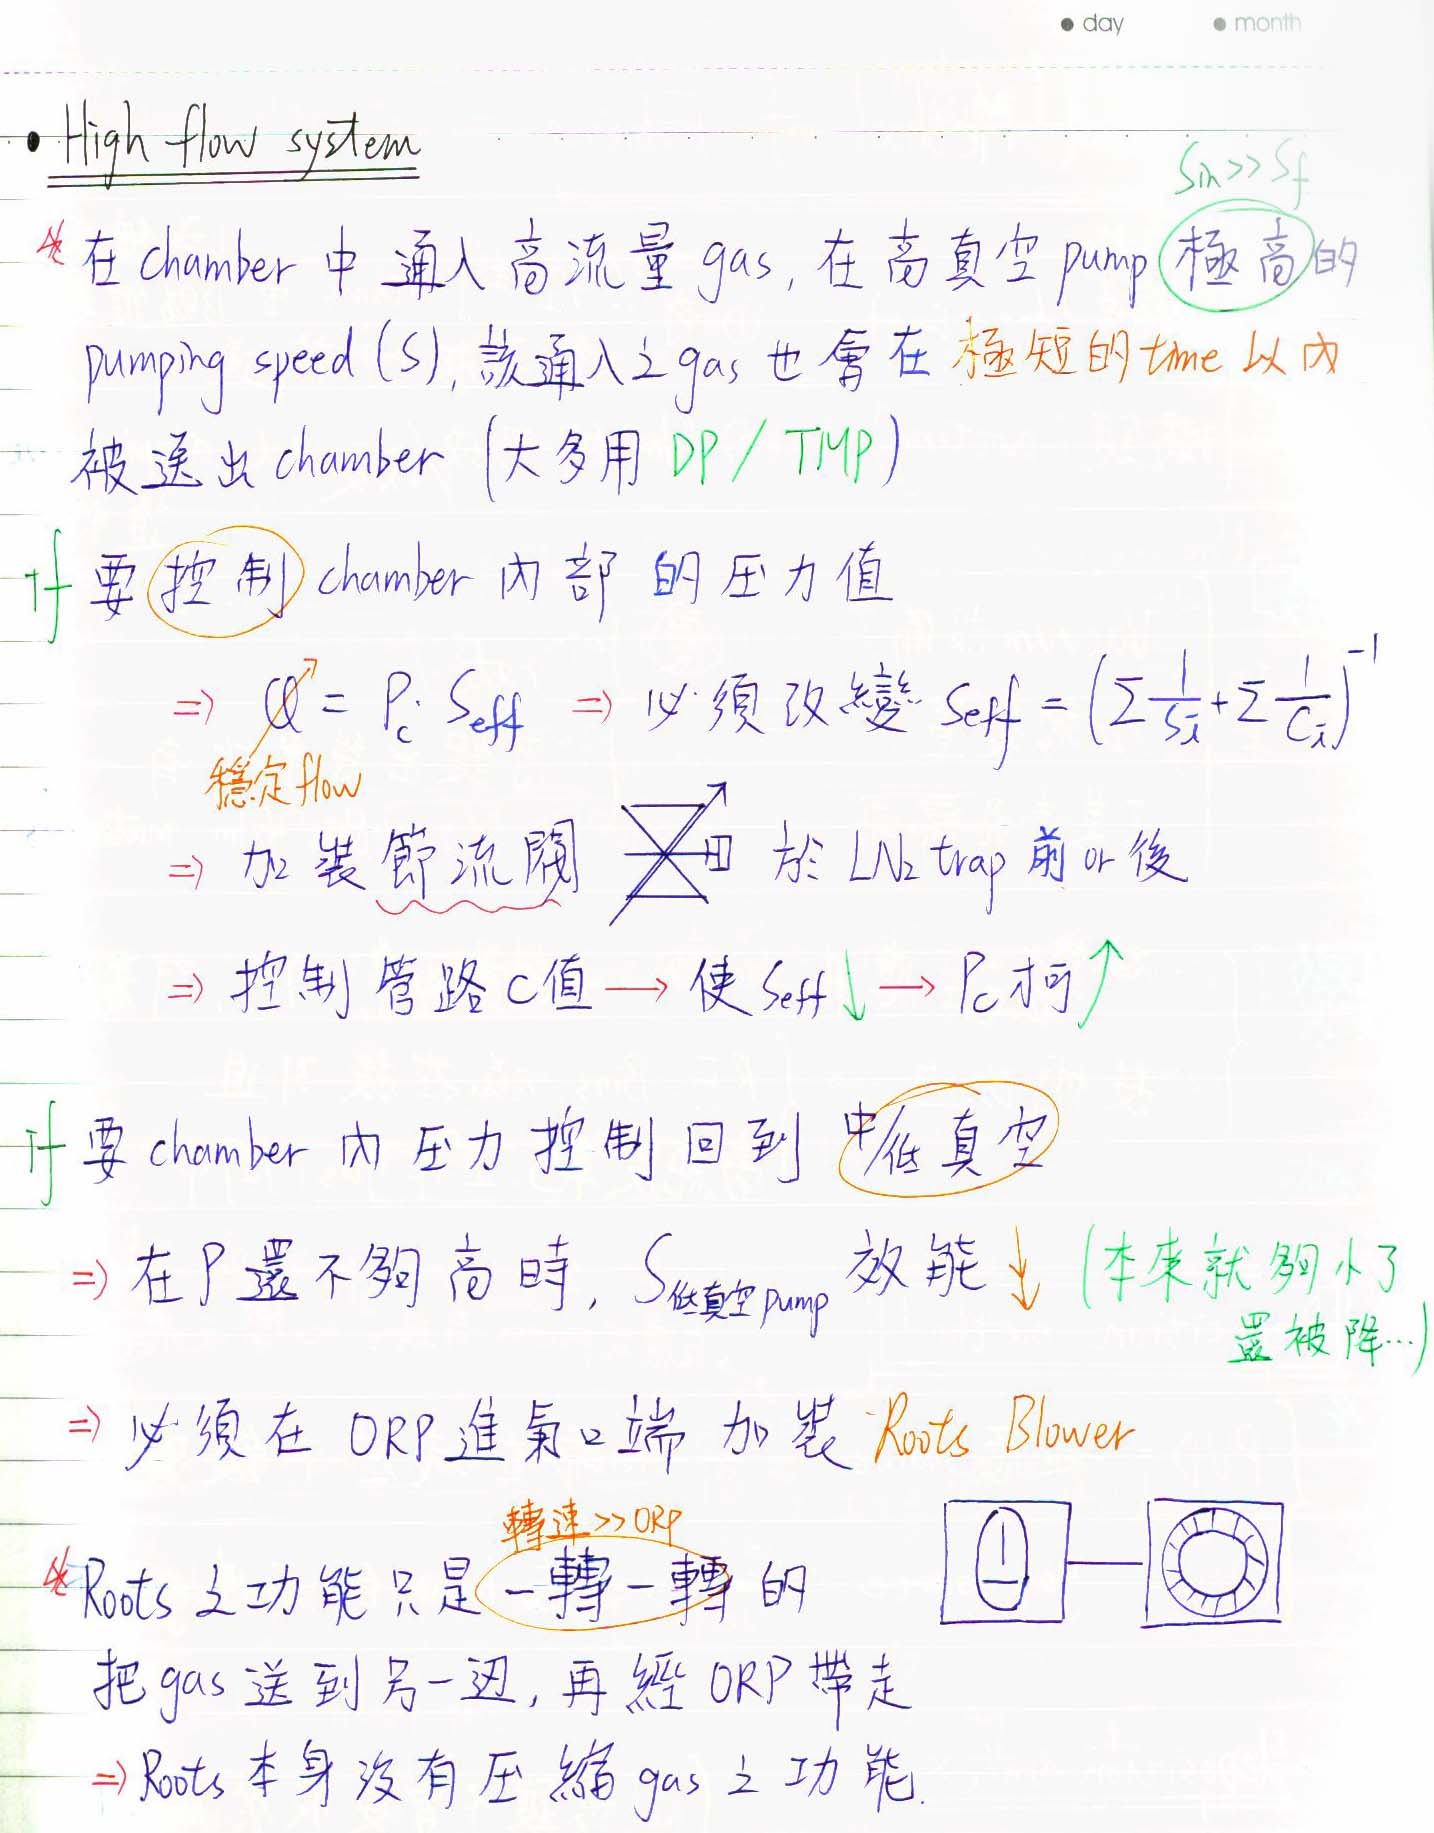 ● day ● month
• High flow system
Sin>>Sf
* 在 chamber 中 通入高流量 gas, 在高真空 pump 極高的
pumping speed (S), 該通入之 gas 也會在極短的 time 以內
被送出 chamber (大多用 DP / TMP)
If 要控制 chamber 內部的压力值
⇒ Q = Pc · Seff ⇒ 必須改變 Seff = (Σ 1/Si + Σ 1/Ci)^-1
穩定 flow
⇒ 加裝節流閥 於 LN2 trap 前 or 後
⇒ 控制管路 C值 → 使 Seff ↓ → Pc 才可 ↑
If 要 chamber 內压力控制回到 中/低真空
⇒ 在 P 還不夠高時, S低真空pump 效能 ↓ (本來就夠小了
還被降…)
⇒ 必須在 ORP 進氣口端加裝 Roots Blower
轉速 >> ORP
* Roots 之功能只是一轉一轉的
把 gas 送到另一边, 再經 ORP 帶走
⇒ Roots 本身沒有压縮 gas 之功能.